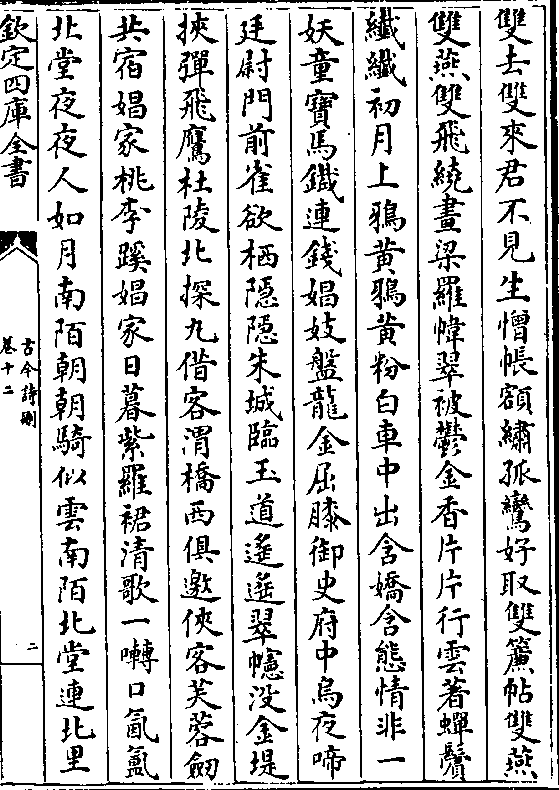 雙去雙來君不見生憎帳額繡孤鸞好取雙簾帖雙燕
雙燕雙飛繞畫梁羅幃翠被鬱金香片片行雲著蟬鬢
纖纖初月上鴉黃鴉黃粉白車中出含嬌含態情非一
妖童寶馬鐵連錢娼妓盤龍金屈膝御史府中烏夜啼
廷尉門前雀欲栖隱隱朱城臨玉道遙遙翠幰没金堤
挾彈飛鷹杜陵北探九借客渭橋西俱邀俠客芙蓉劒
共宿娼家桃李蹊娼家日暮紫羅裙清歌一囀口氤氳
北堂夜夜人如月南陌朝朝騎似雲南陌北堂連北里
欽定四庫全書
古今詩刪
卷十二
二